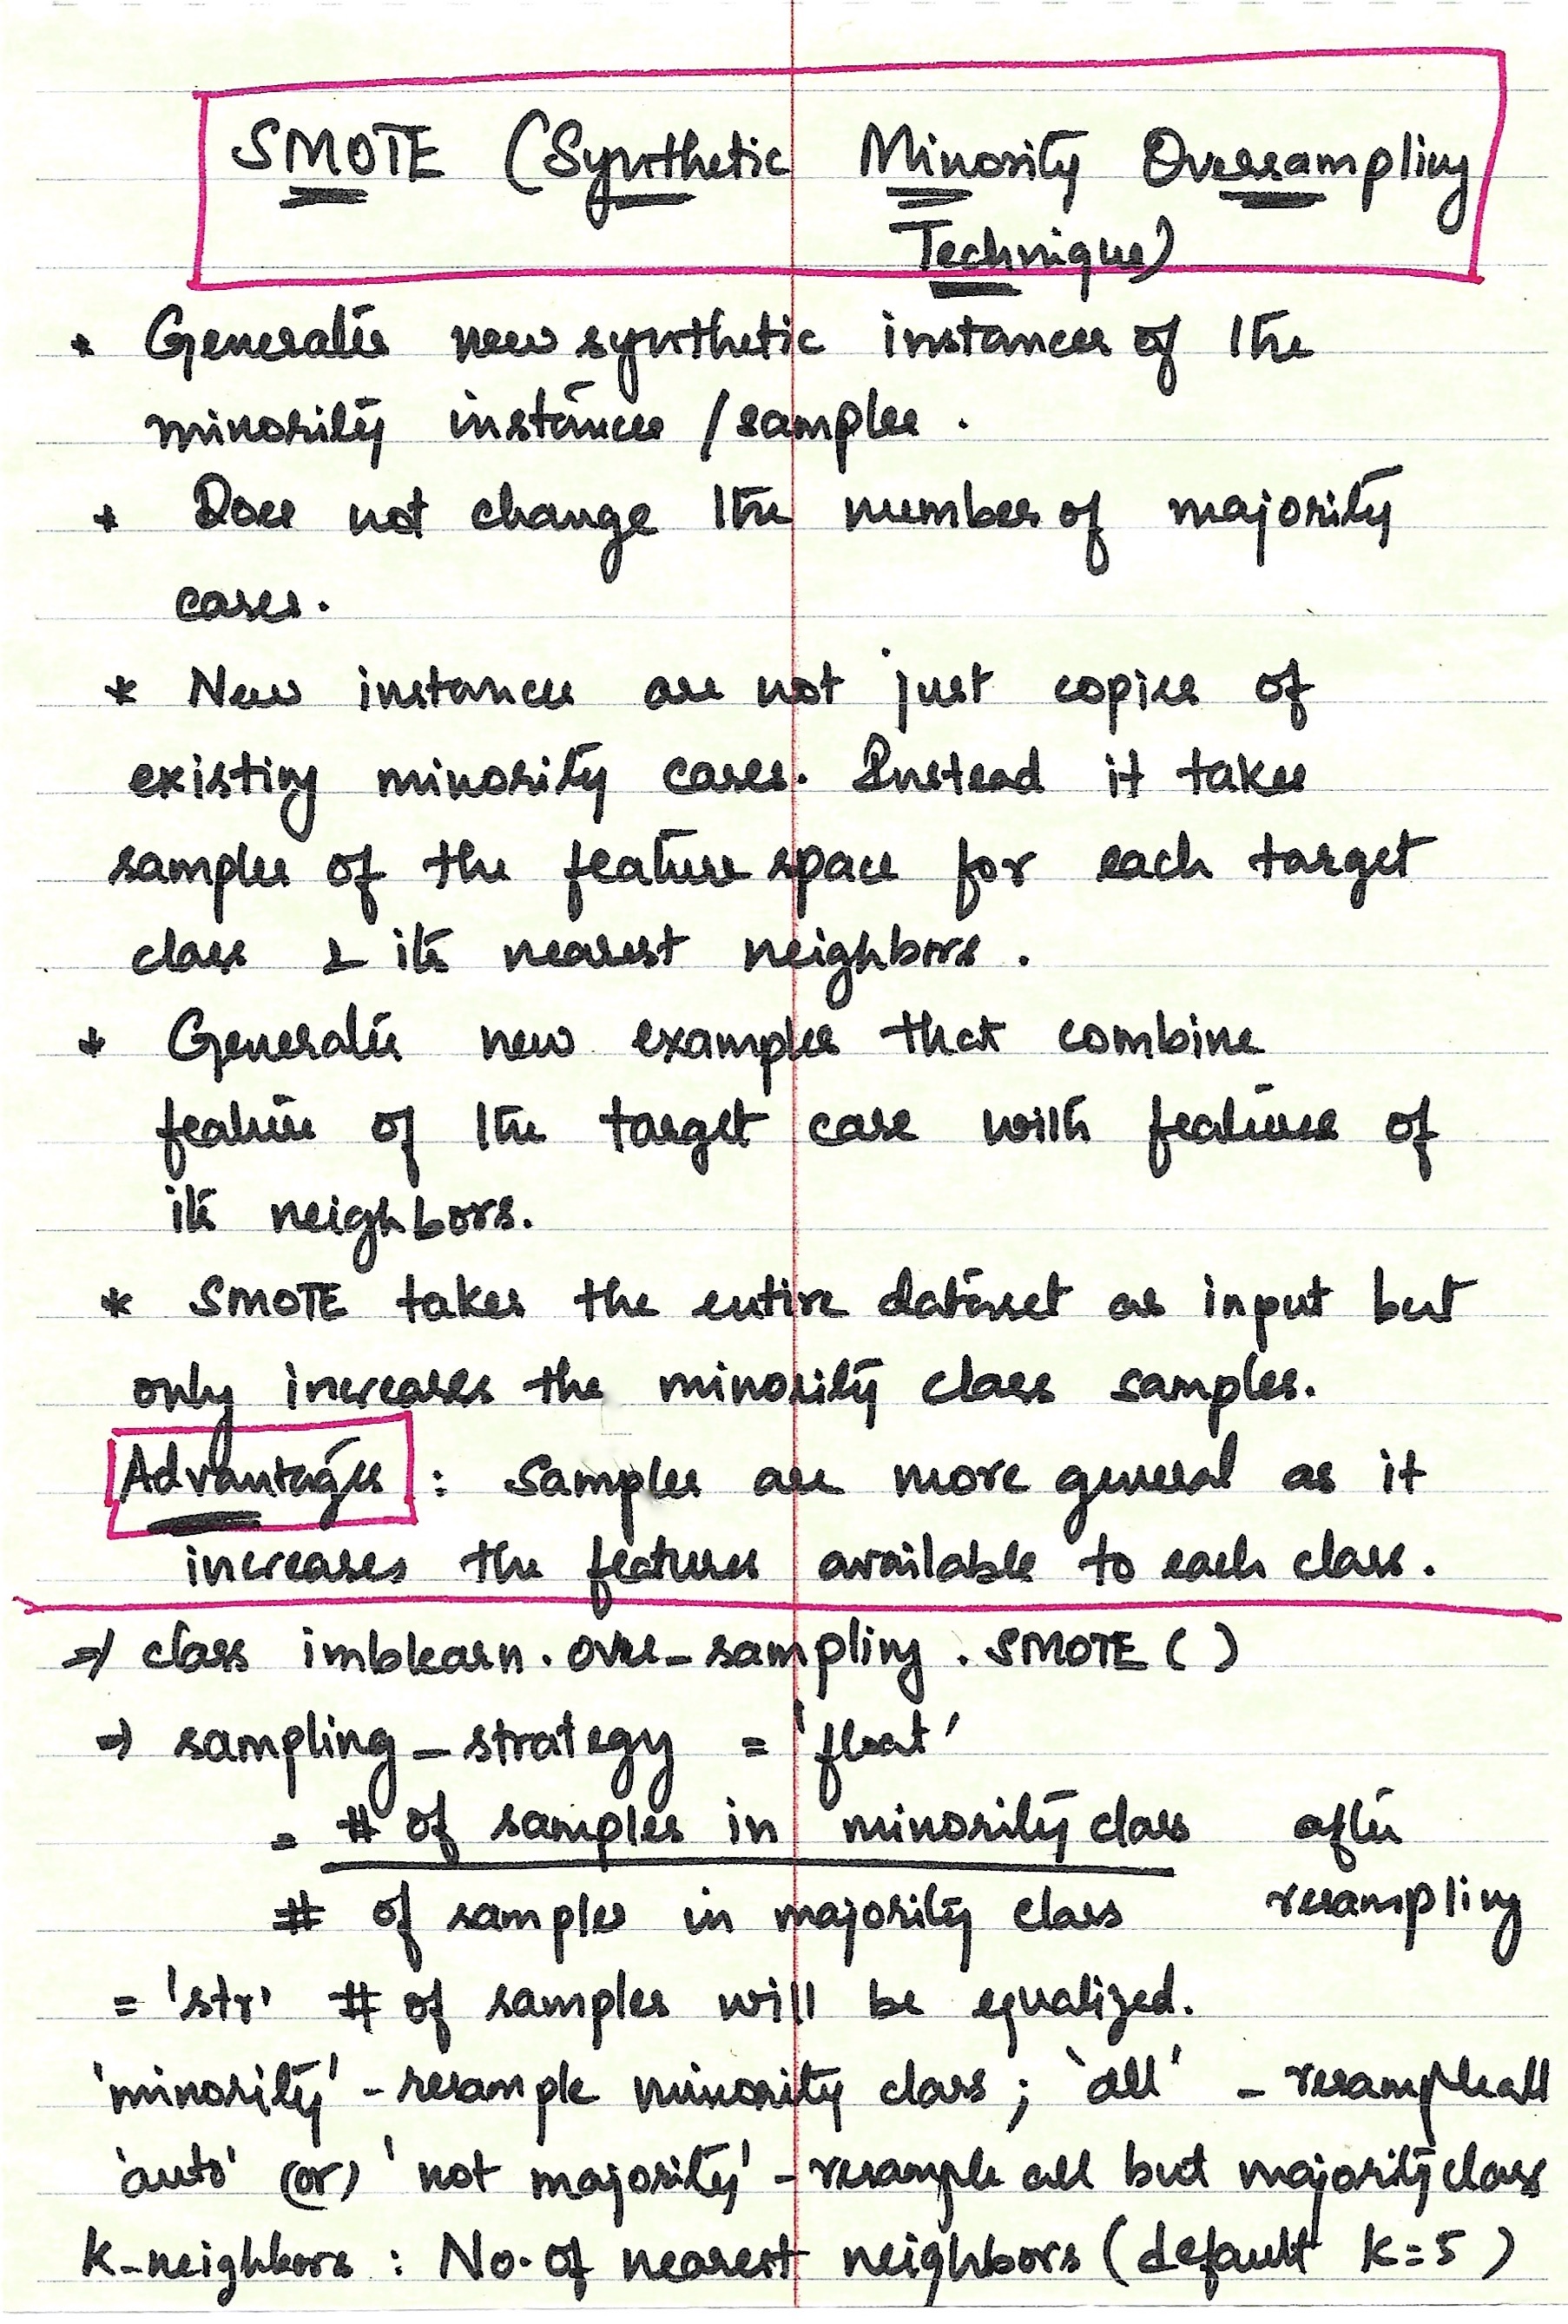 SMOTE (Synthetic Minority Oversampling
Technique)
* Generates new synthetic instances of the
minority instances / samples.
* Does not change the number of majority
cases.
* New instances are not just copies of
existing minority cases. Instead it takes
samples of the feature space for each target
class & its nearest neighbors.
* Generates new examples that combine
features of the target case with features of
its neighbors.
* SMOTE takes the entire dataset as input but
only increases the minority class samples.
Advantages : Samples are more general as it
increases the features available to each class.
⇒ class imblearn.over_sampling.SMOTE ()
⇒ sampling_strategy = 'float'
= # of samples in minority class after
# of samples in majority class resampling
= 'str' # of samples will be equalized.
'minority' - resample minority class ; 'all' - resample all
'auto' (or) 'not majority' - resample all but majority class
k-neighbors : No. of nearest neighbors (default k=5)